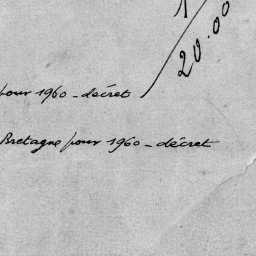 20.00
pour 1960 - décret
Bretagne pour 1960 - décret